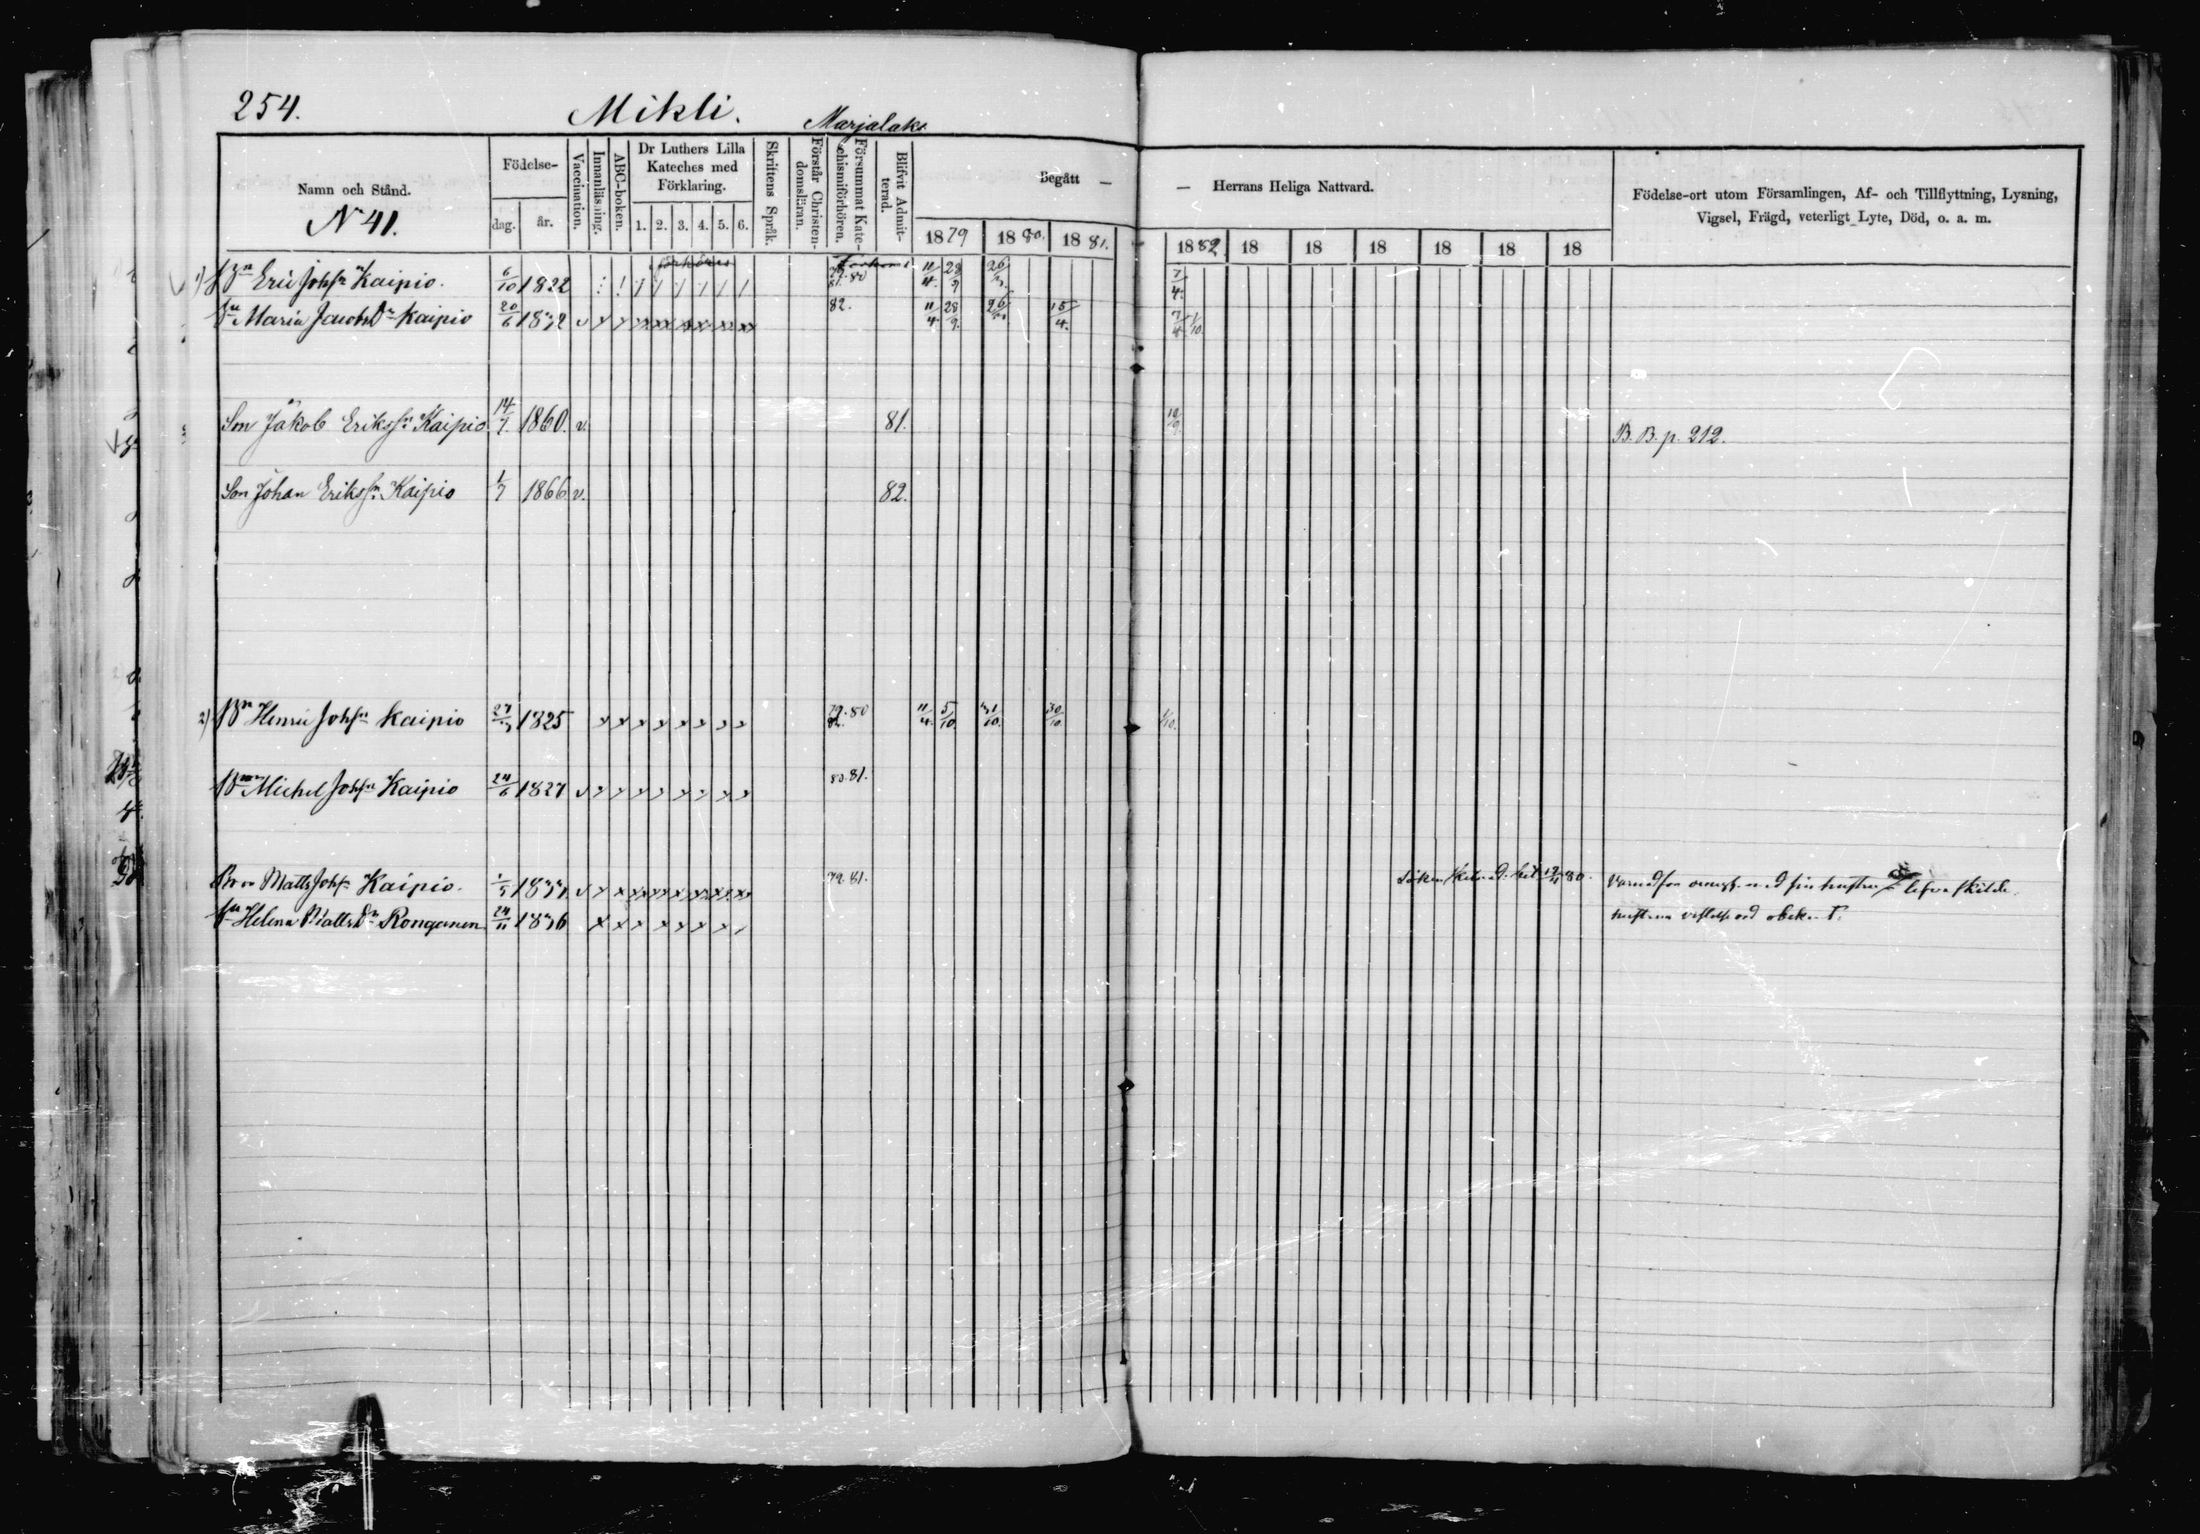 254.
Mikli.
Marjalaks
Namn och Stånd.
No 41.
Födelse-
dag.
år.
Vaccination.
Innanläsning.
ABC-boken.
Dr Luthers Lilla
Kateches med
Förklaring.
1. 2. 3. 4. 5. 6.
Skriftens Språk.
Förstår Christen-
domsläran.
Försummat Kate-
chismiförhören.
Blifvit Admit-
terad.
Begått — — Herrans Heliga Nattvard.
1879 1880. 1881. 1882 18 18 18 18 18 18
Födelse-ort utom Församlingen, Af- och Tillflyttning, Lysning,
Vigsel, Frägd, veterligt Lyte, Död, o. a. m.
1) Eric Johsn Kaipio. 6/10 1822 80 81. 11/4 28/9 26/ 7/4.
Hu Maria JacobsDr Kaipio 20/6 1832 v 82. 11/4 28/9. 26/ 15/4. 7/4 1/10.
Son Jakob Erikssn Kaipio 14/7. 1860. v. 81. B. B. p. 212.
Son Johan Erikssn Kaipio 1/7 1866 v. 82.
2) Henric Johsn Kaipio 27/ 1825 79.80 11/4. 5/10. 31/10. 30/10. 1/10.
Michel Johsn Kaipio 24/6 1827 v 80.81.
Matts Johsn Kaipio. 79.81. 80.
Hu Helena MattsDr Ronganen 24/11 1836